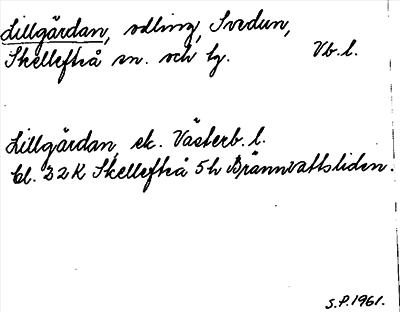 Lillgärdan, odling, Svedun,
Skellefteå sn. och tg. Vb.l.
Lillgärdan, ek. Västerb. l.
bl. 22K Skellefteå 5h Brännvattsliden.
S.P. 1961.